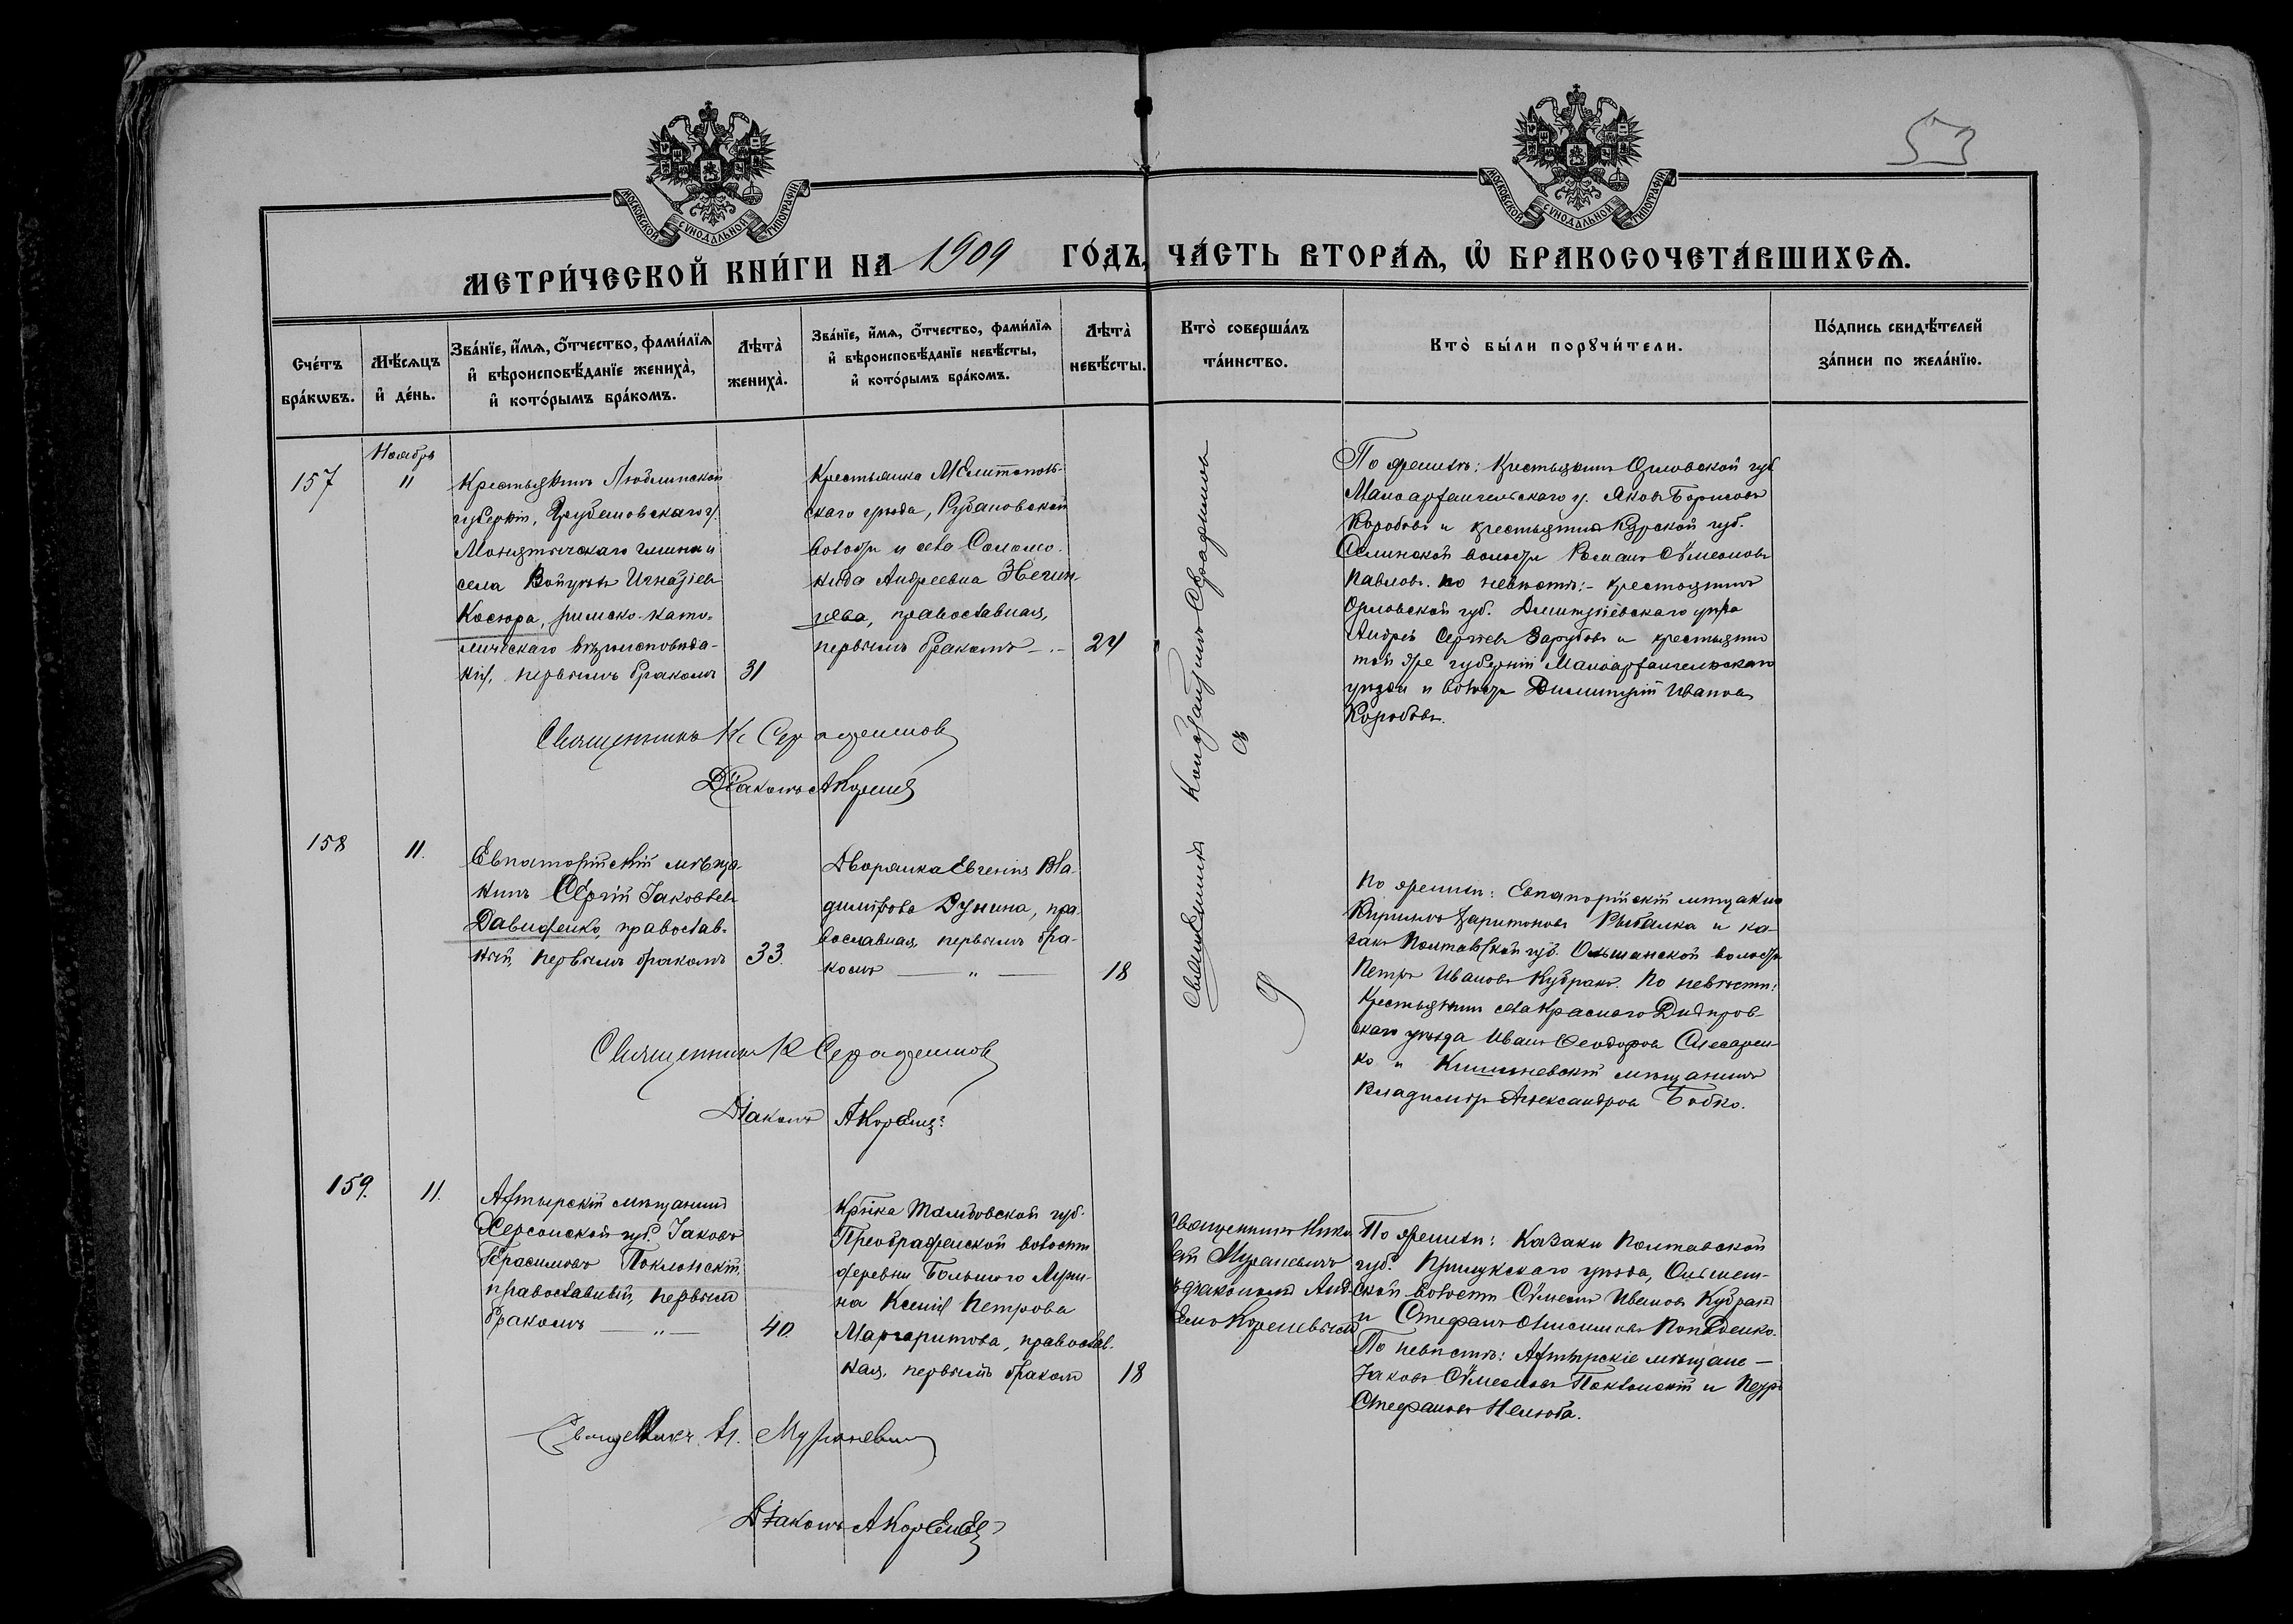 МОСКОВСКОЙ СѴНОДАЛЬНОЙ ТИПОГРАФІИ
МОСКОВСКОЙ СѴНОДАЛЬНОЙ ТИПОГРАФІИ
53
МЕТРИ́ЧЕСКОЙ КНИ́ГИ НА 1909 ГО́ДЪ, ЧА́СТЬ ВТОРА́Ѧ, Ѡ҆ БРАКОСОЧЕТА́ВШИХСѦ.
Сче́тъ
бра́кѡвъ.
Мѣ́сѧцъ
и҆ де́нь.
Зва́нїе, и҆́мѧ, ѻ҆́тчество, фами́лїѧ
и҆ вѣроисповѣ́данїе жениха̀,
и҆ кото́рымъ бра́комъ.
Лѣ́та̀
жениха̀.
Зва́нїе, и҆́мѧ, ѻ҆́тчество, фами́лїѧ
и҆ вѣроисповѣ́данїе невѣ́сты,
и҆ кото́рымъ бра́комъ.
Лѣ́та̀
невѣ́сты.
Кто̀ соверша́лъ
та́инство.
Кто̀ бы́ли порꙋчи́тели.
По́дпись свидѣ́телей
за́писи по жела́нїю.
Ноябрь
157
11
Крестьянинъ Люблинской
губерніи, Грубешовскаго у.
гмины и
села Войцехъ Игнатіевъ
Косюра, римско-като-
лическаго вѣроисповѣда-
нія, первымъ бракомъ
31
Крестьянка Мелитополь-
скаго уѣзда, Рубановской
волости и села Соломо-
нида Андреевна
православная,
первымъ бракомъ —
24
Священникъ Константинъ Серафимовъ
съ
По женихѣ: Крестьянинъ Орловской губ.
Малоархангельскаго у. Яковъ Борисовъ
Коробовъ и крестьянинъ Курской губ.
волости Романъ Сѵмеоновъ
Павловъ. По невѣстѣ:- крестьянинъ
Орловской губ. Димитріевскаго уѣзда
Андрей Сергѣевъ Зарубовъ и крестьянинъ
той же губерніи Малоархангельскаго
уѣзда и волости Димитрій Ивановъ
Коробовъ.
Священникъ К Серафимовъ
Діаконъ А Корені
158
11.
Евпаторійскій мѣща-
нинъ Сергій Іаковлевъ
Давиденко, православ-
ный, первымъ бракомъ
33.
Дворянка Евгенія Вла-
димірова Дунина, пра-
вославная, первымъ бра-
комъ — „ —
18
По женихѣ: Евпаторійскій мѣщанинъ
Кириллъ Харитоновъ Рыбалка и ка-
закъ Полтавской губ. Ольшанской волости
Петръ Ивановъ Кубракъ. По невѣстѣ:
Крестьянинъ села Краснаго Днѣпров-
скаго уѣзда Иванъ Ѳеодоровъ Слесарен-
ко и Кишиневскій мѣщанинъ
Владиміръ Александровъ Бобко.
Священникъ К Серафимовъ
Діаконъ А Корені
159.
11.
Ахтырскій мѣщанинъ
Херсонской губ. Іаковъ
Герасимовъ Поклонскій,
православный, первымъ
бракомъ — „ —
40.
Кр-нка Тамбовской губ.
Преображенской волости
деревни Большого
Ксенія Петрова
Маргаритова, православ-
ная, первымъ бракомъ
18
Священникъ Нико-
лай Мураневичъ
съ діакономъ
Кореневымъ
По женихѣ: Казаки Полтавской
губ. Прилукскаго уѣзда, Ольшан-
ской волости Сѵмеонъ Ивановъ Кубракъ
и Стефанъ Анисимовъ Попаденко.
По невѣстѣ: Ахтырскіе мѣщане —
Іаковъ Сѵмеоновъ Поклонскій и Петръ
Стефановъ
Священникъ Н. Мураневичъ
Діаконъ А Корені